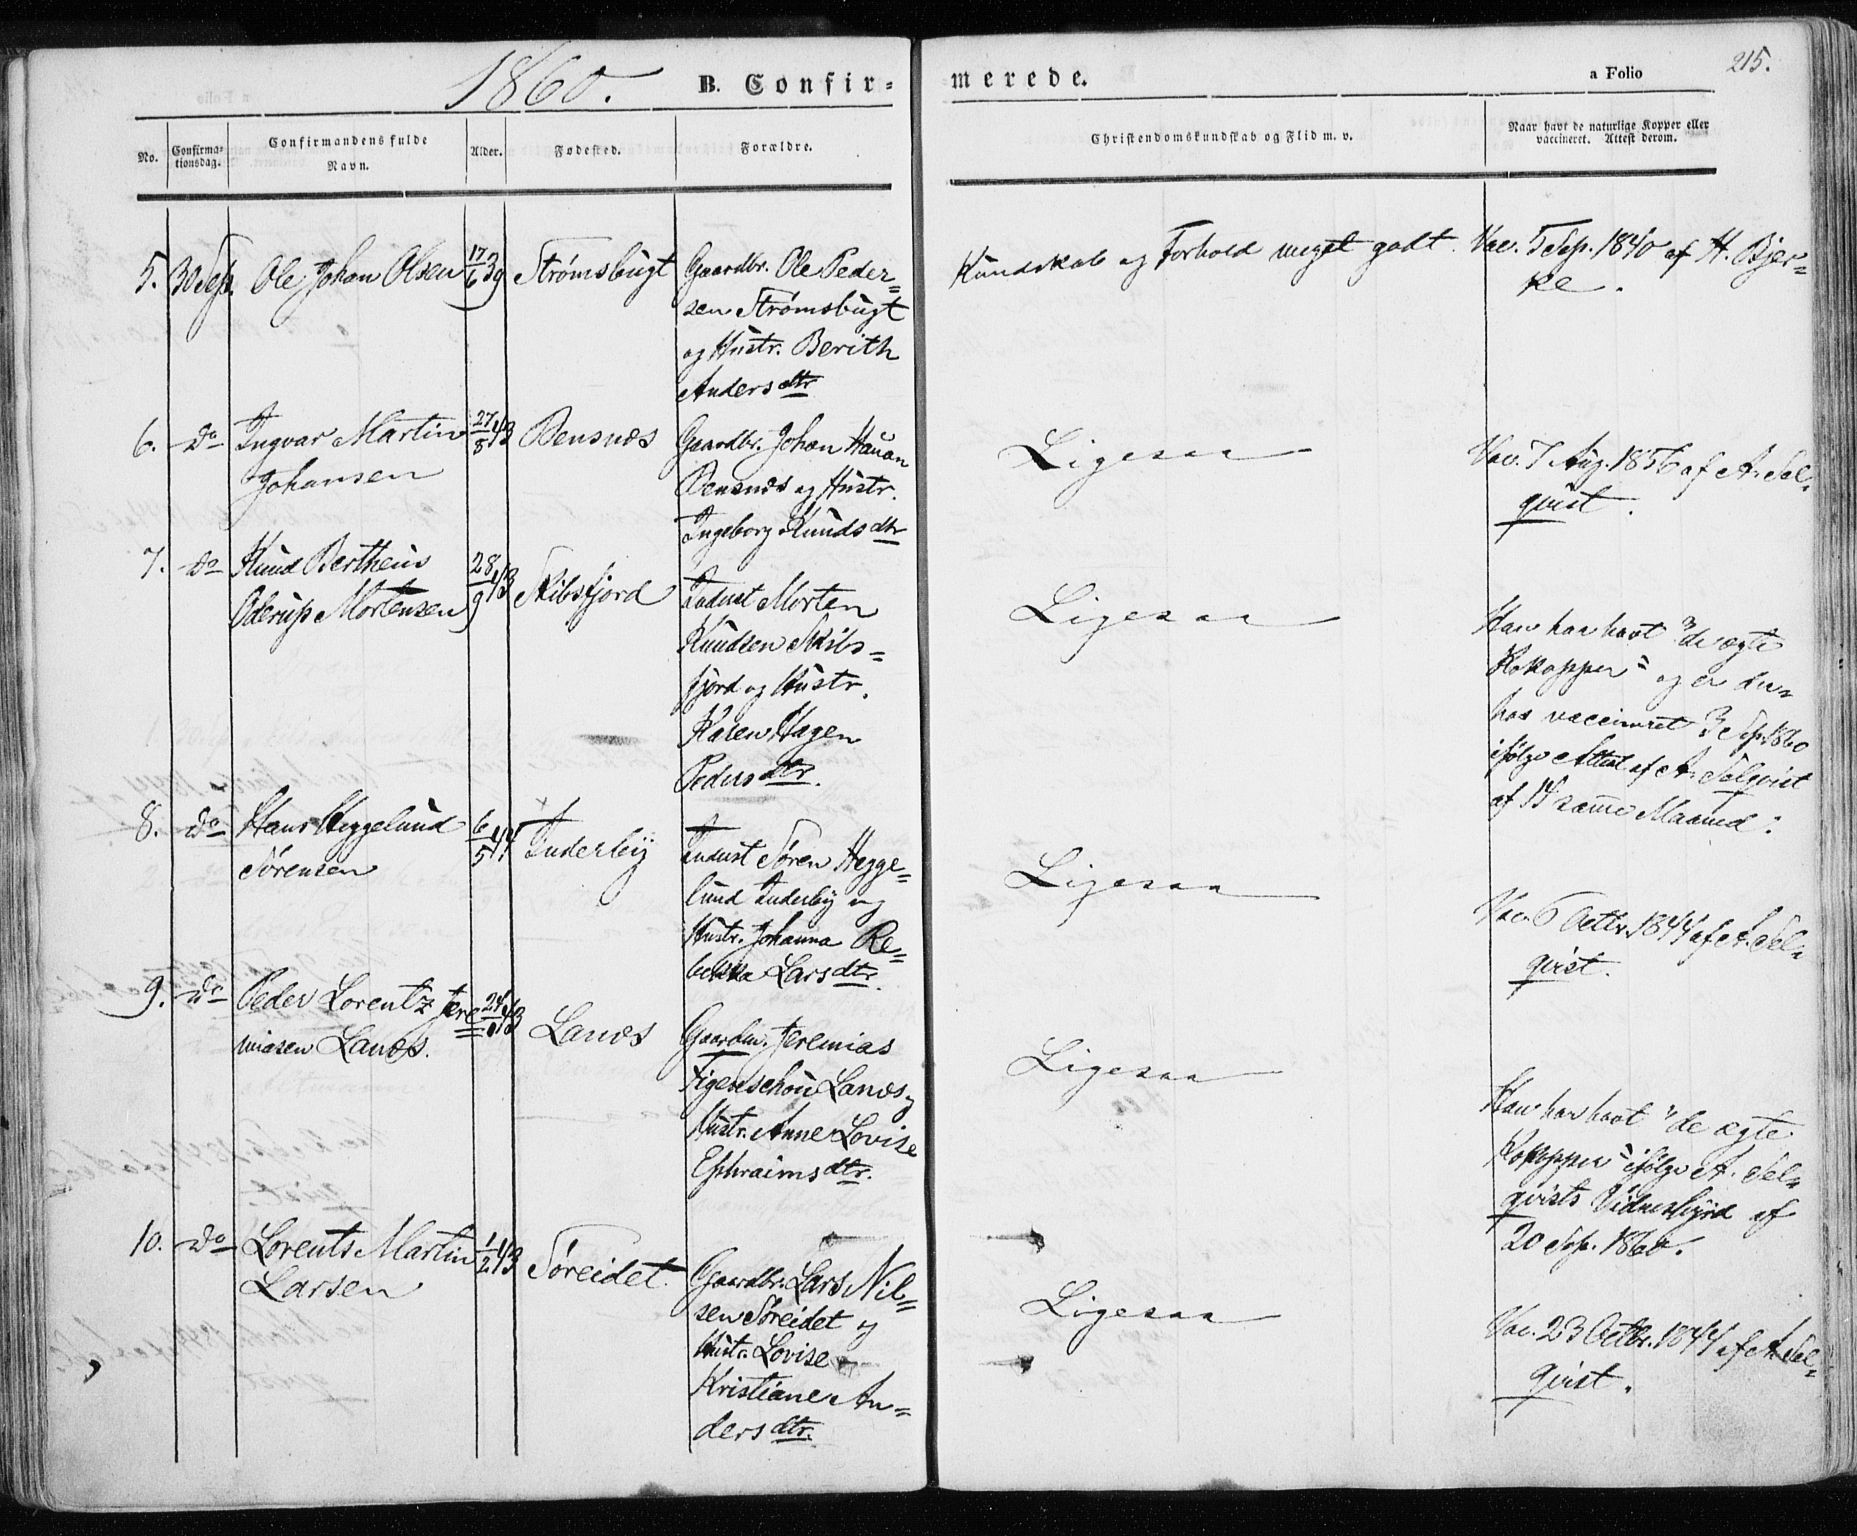 1860. B. Confir-
merede. a Folio 215.
No. Confirma-
tionsdag. Confirmandens fulde
Navn. Alder. Fødested. Forældre.
Christendomskundskab og Flid m. v. Naar havt de naturlige Kopper eller
vaccineret. Attest derom.
5. 30 Sep. Ole Johan Olsen 17/6 39 Strømsbugt Gaardbr. Ole Peder-
sen Strømsbugt
og Hustr. Berith
Andersdtr
Kundskab og Forhold meget godt. Vac. 5 Sep. 1840 af H. Bjer-
ke.
6. Do Ingvar Martin 27/8 43 Bensnæs Gaardbr. Johan Hauan
Johansen Bensnæs og Hustr.
Ingeborg Knudsdtr
Ligesaa Vac. 7 Aug. 1856 af A. Sel-
qvist.
7. Do Knud Bertheus 28/9 43 Skibsfjord Indust Morten
Oderup Mortensen Knudsen Skibs-
fjord og Hustr.
Karen Hagen
Pedersdtr.
Ligesaa Han har havt "de ægte
Kokopper" og er des-
hos vaccineret 3 Sep 1860
ifølge Attest af A. Selqvist
af 14 samme Maaned.
8. Do Hans Heggelund 6/5 44 Inderby Indust Søren Hegge-
Sørensen lund Inderby og
Hustr. Johanna Re-
bekka Larsdtr.
Ligesaa Vac. 6 Octbr. 1844 af A. Sel-
qvist.
9. Do Peder Lorentz Jere- 43 Lanæs Gaardm. Jeremias
miasen Lanæs. Figenschou Lanæs og
Hustr. Anne Lovise
Ephraimsdtr.
Ligesaa Han har havt "de ægte
Kokopper" ifølge A. Sel-
qvists Vidnesbyrd af
20 Sep. 1860.
10. Do Lorents Martin 1/2 43 Søreidet. Gaardbr. Lars Nil-
Larsen sen Søreidet og
Hustr. Lovise
Kristiane An-
dersdtr.
Ligesaa Vac. 23 Octbr. 1844 af A. Sel-
qvist.